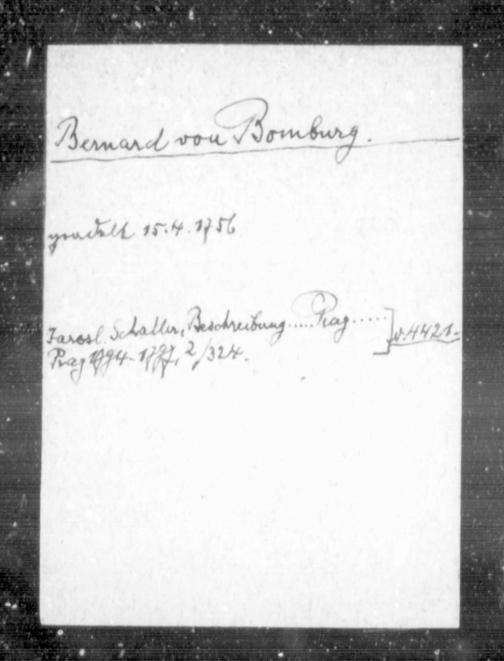 Bernard von Bomburg.
geadelt 15.4.1756
Jarosl. Schaller, Beschreibung.....Prag.....] v.4421.
Prag 1794-1797, 2/324.